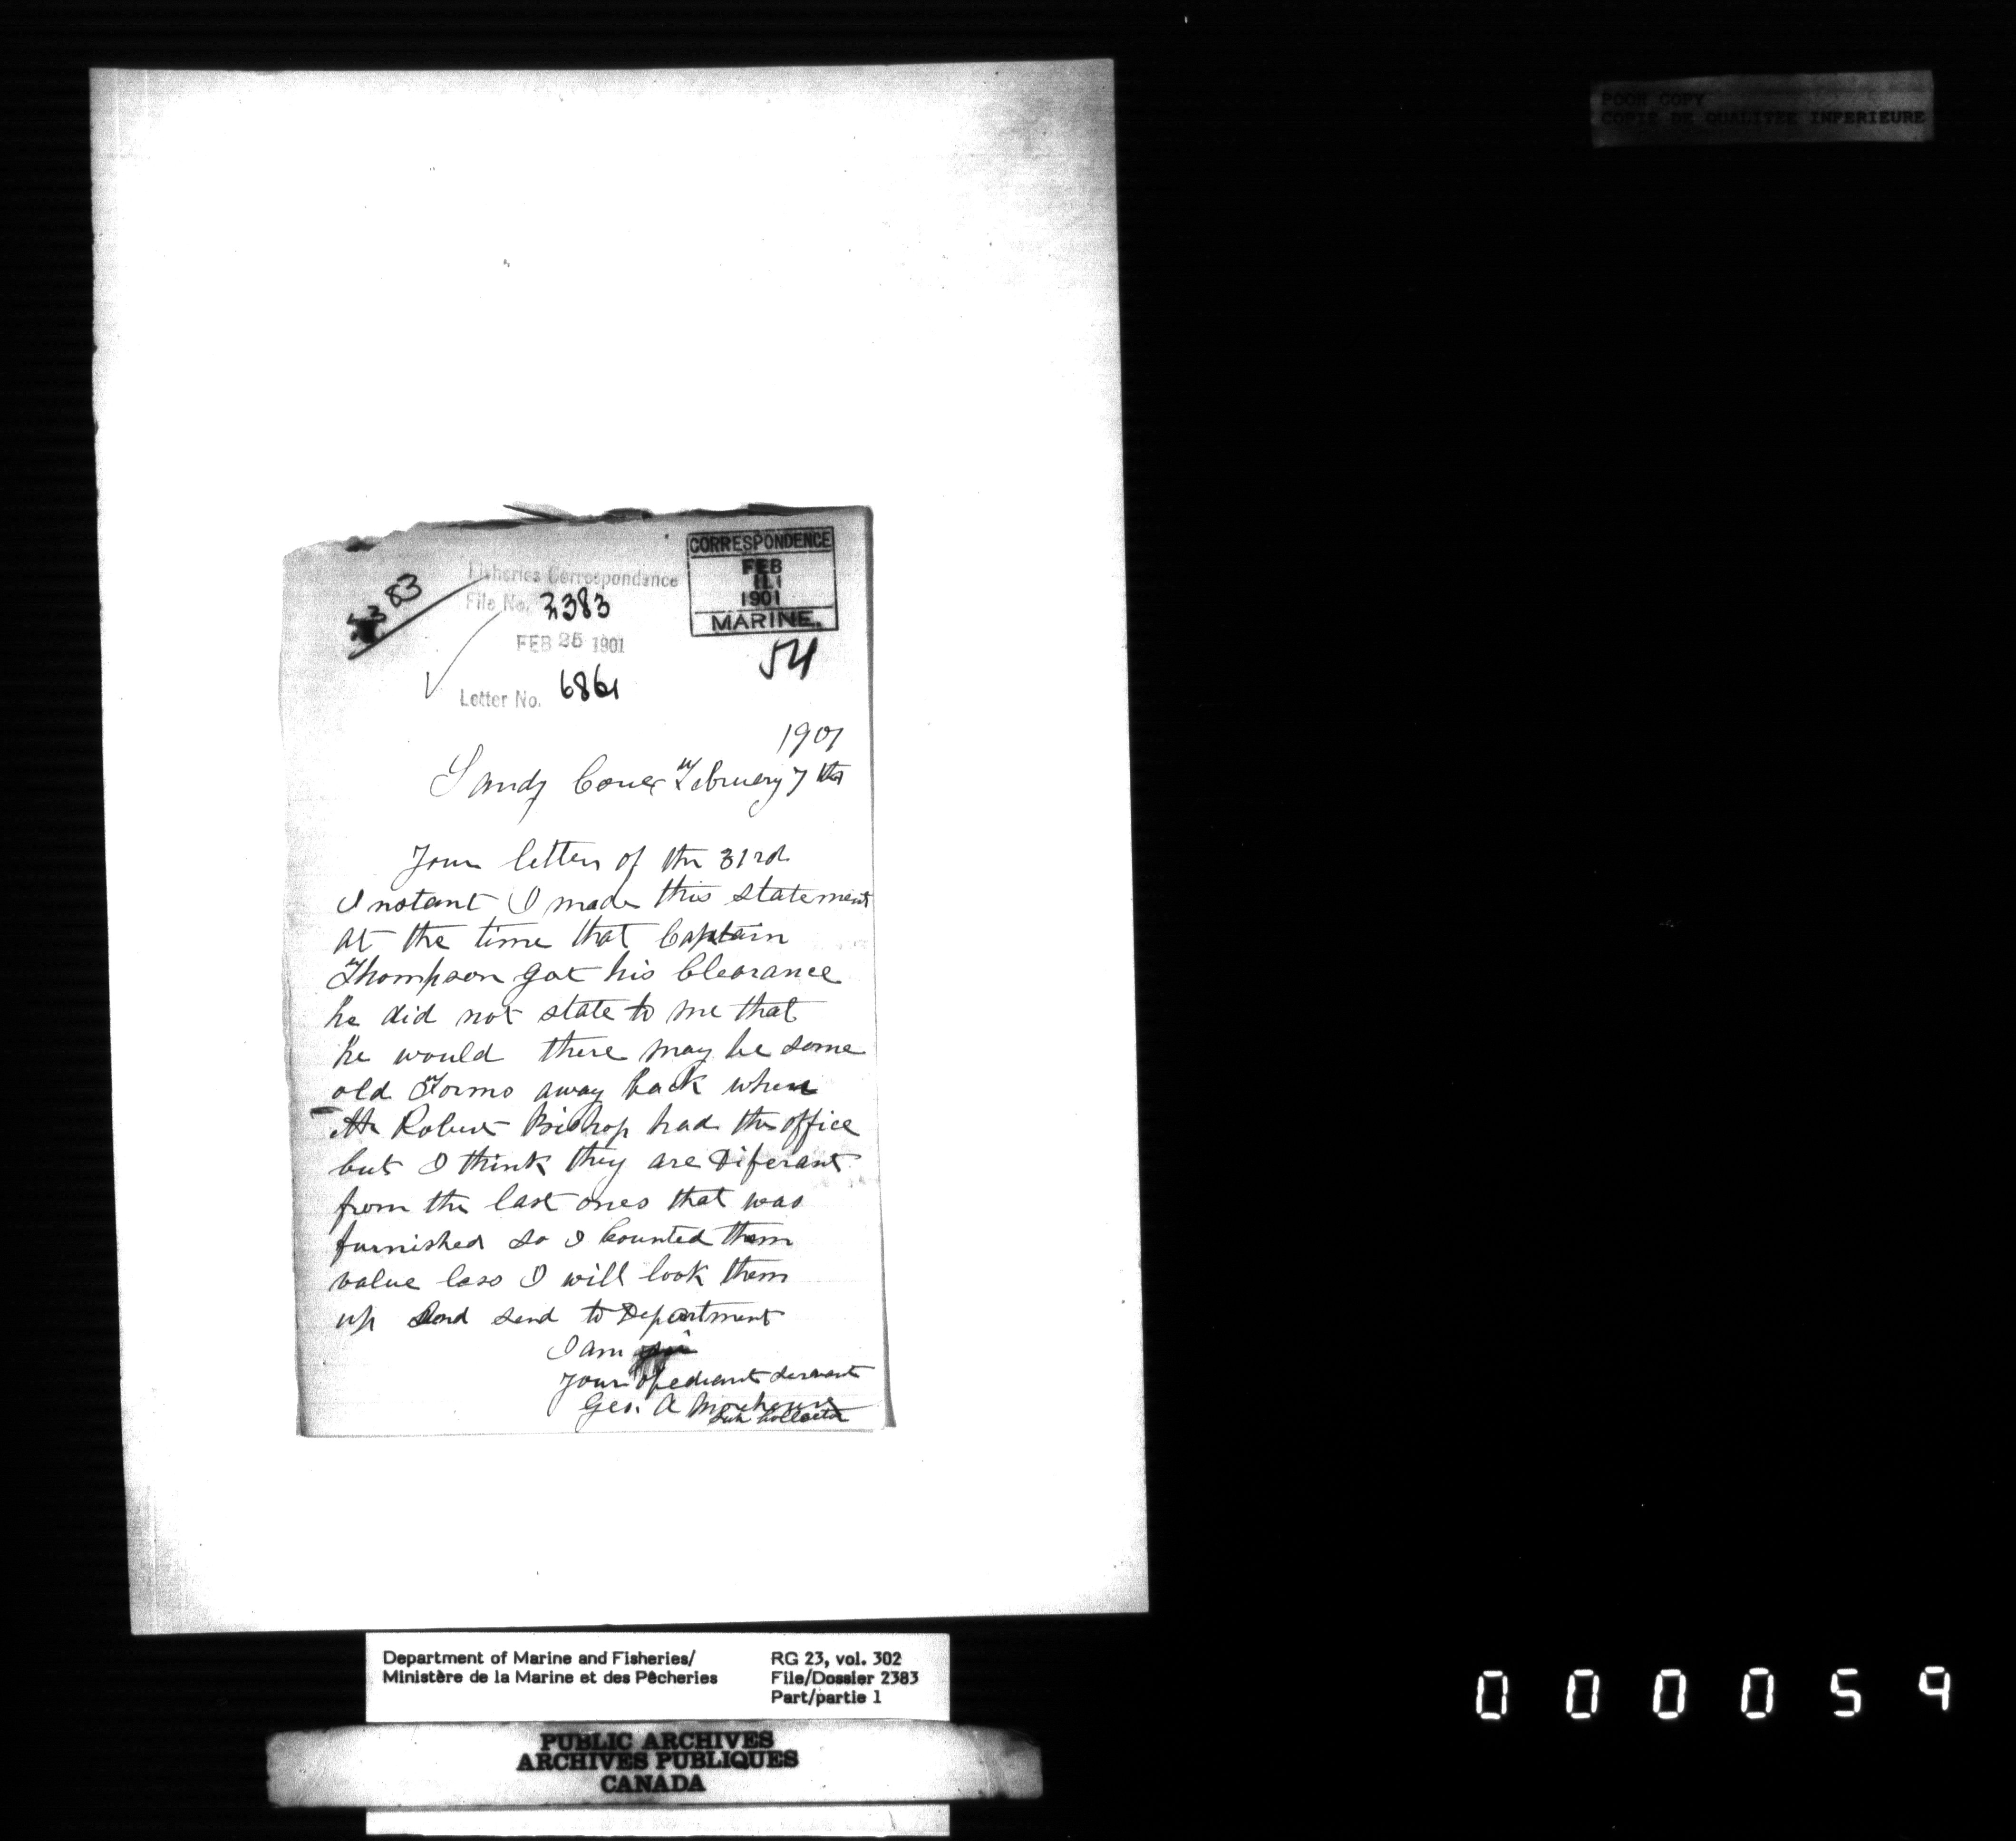 POOR COPY
COPIE DE QUALITEE INFERIEURE
CORRESPONDENCE
FEB
11
1901
MARINE.
54
2383
Fisheries Correspondence
File No. 2383
FEB 25 1901
Letter No. 6861
1901
Sandy Cove February 7th
Your letter of the 31rd
Instant I made this statement
at the time that Captain
Thompson got his Clearance
he did not state to me that
he would there may be some
old Forms away back when
Mr Robert Bishop had the office
but I think they are Diferant
from the last ones that was
furnished so I Counted them
value less I will look them
up and send to Department
I am
your obediant servant
Geo. A Morehouse
Sub Collector
Department of Marine and Fisheries/
Ministère de la Marine et des Pêcheries
RG 23, vol. 302
File/Dossier 2383
Part/partie 1
PUBLIC ARCHIVES
ARCHIVES PUBLIQUES
CANADA
000059